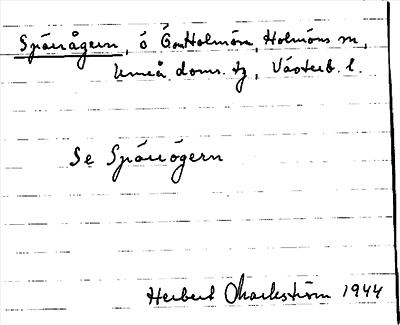 Spärrågern, ö Ö om Holmön, Holmöns m,
Umeå doms. tg, Västerb. l.
Se Spärrögern
Herbert Markström 1944